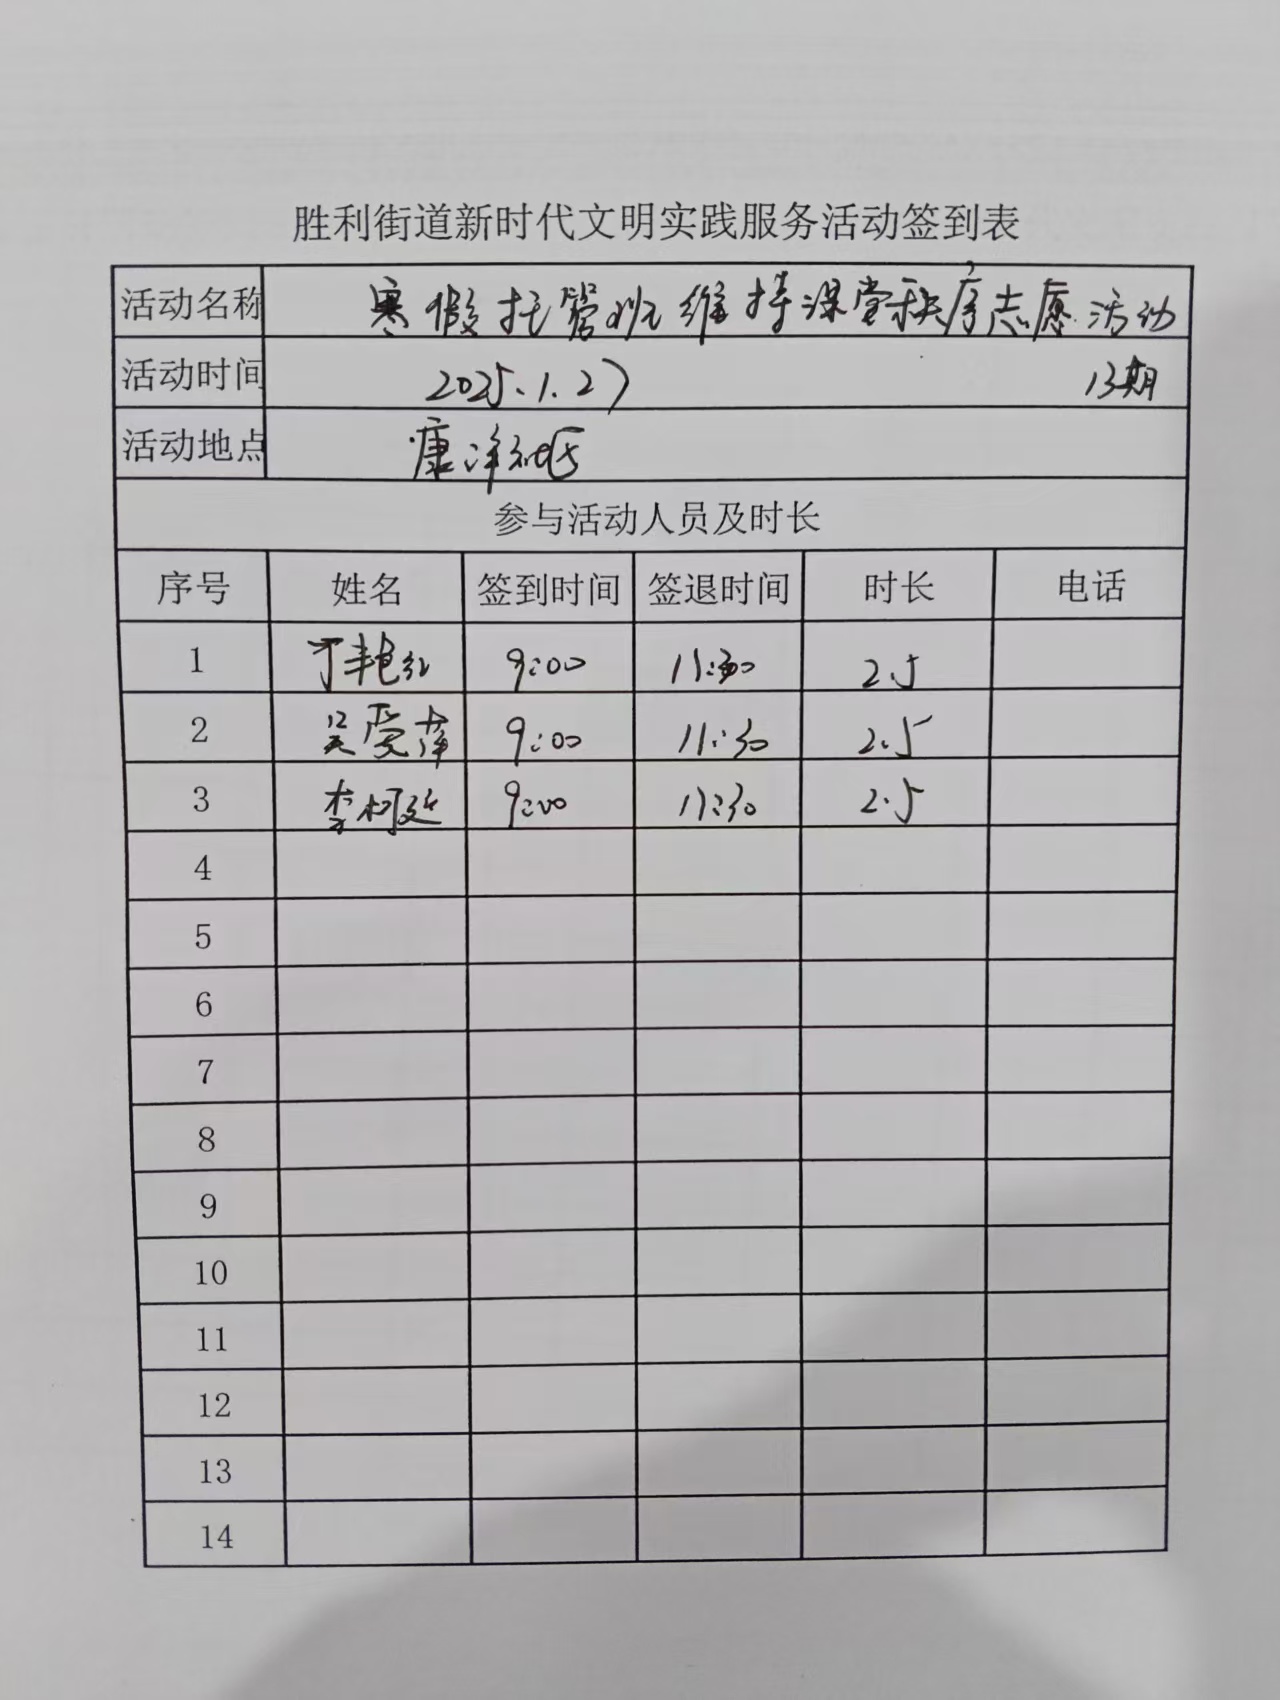 胜利街道新时代文明实践服务活动签到表
活动名称 寒假托管班维持课堂秩序志愿活动
活动时间 2025.1.27 13期
活动地点 康泽社区
参与活动人员及时长
序号 姓名 签到时间 签退时间 时长 电话
1 于艳红 9:00 11:30 2.5
2 吴爱萍 9:00 11:30 2.5
3 李柯廷 9:00 11:30 2.5
4
5
6
7
8
9
10
11
12
13
14